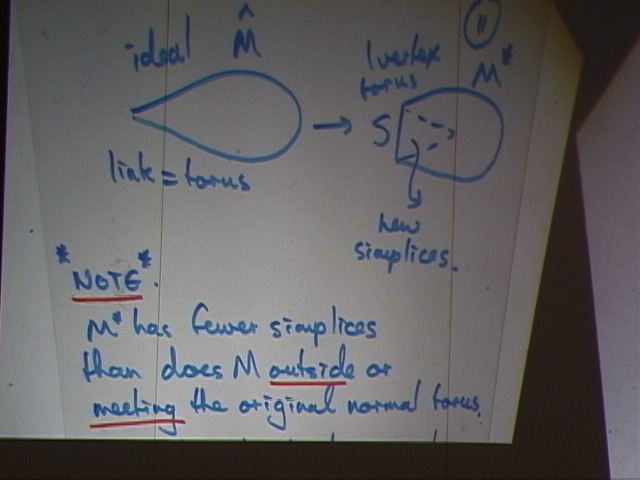 ideal M̂
11
1 vertex
torus
M*
S
link = torus
new
simplices.
*NOTE*.
M* has fewer simplices
than does M outside or
meeting the original normal torus.